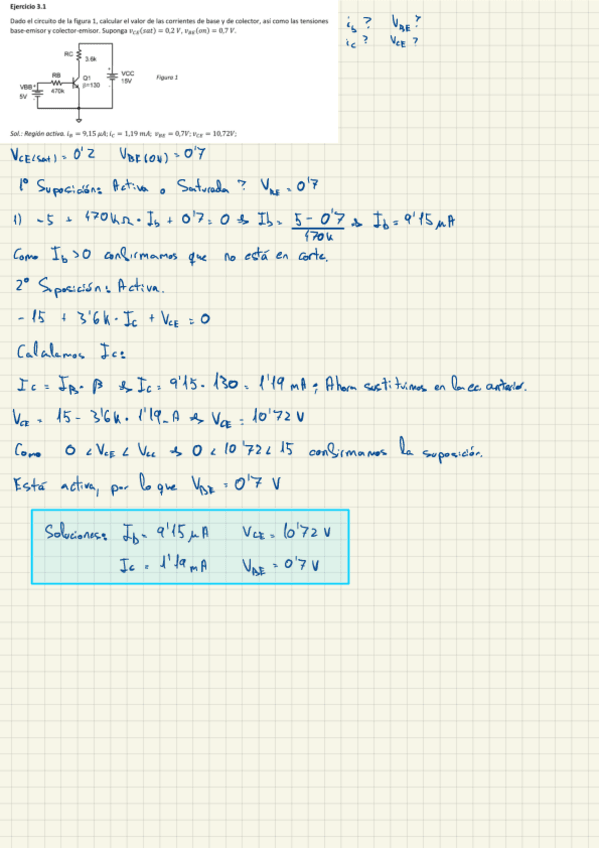 Ejercicio 3.1
i_b ? V_BE ?
Dado el circuito de la figura 1, calcular el valor de las corrientes de base y de colector, así como las tensiones
base-emisor y colector-emisor. Suponga v_CE(sat) = 0,2 V, v_BE(on) = 0,7 V.
i_c ? V_CE ?
RC
3.6k
RB
470k
Q1
β=130
VCC
15V
VBB
5V
Figura 1
Sol.: Región activa. i_B = 9,15 μA; i_C = 1,19 mA; v_BE = 0,7V; v_CE = 10,72V;
V_CE(sat) = 0'2 V_BE(ON) = 0'7
1º Suposición: Activa o Saturada ? V_BE = 0'7
1) -5 + 470kΩ · I_b + 0'7 = 0 → I_b = 5 - 0'7 / 470k → I_b = 9'15 μA
Como I_b > 0 confirmamos que no está en corte.
2º Suposición: Activa.
- 15 + 3'6k · I_c + V_CE = 0
Calculemos I_c:
I_c = I_B · β → I_c = 9'15 · 130 = 1'19 mA ; Ahora sustituimos en la ec. anterior.
V_CE = 15 - 3'6k · 1'19mA → V_CE = 10'72 V
Como 0 < V_CE < V_CC → 0 < 10'72 < 15 confirmamos la suposición.
Está activa, por lo que V_BE = 0'7 V
Soluciones: I_b = 9'15 μA V_CE = 10'72 V
I_c = 1'19 mA V_BE = 0'7 V